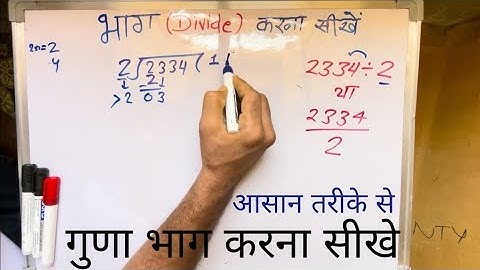 भाग (Divide) करना सीखें
2x1=2
4
2√2334(1
2↓
>2 03
2334÷2
या
2334
2
आसान तरीके से
गुणा भाग करना सीखे
NTY